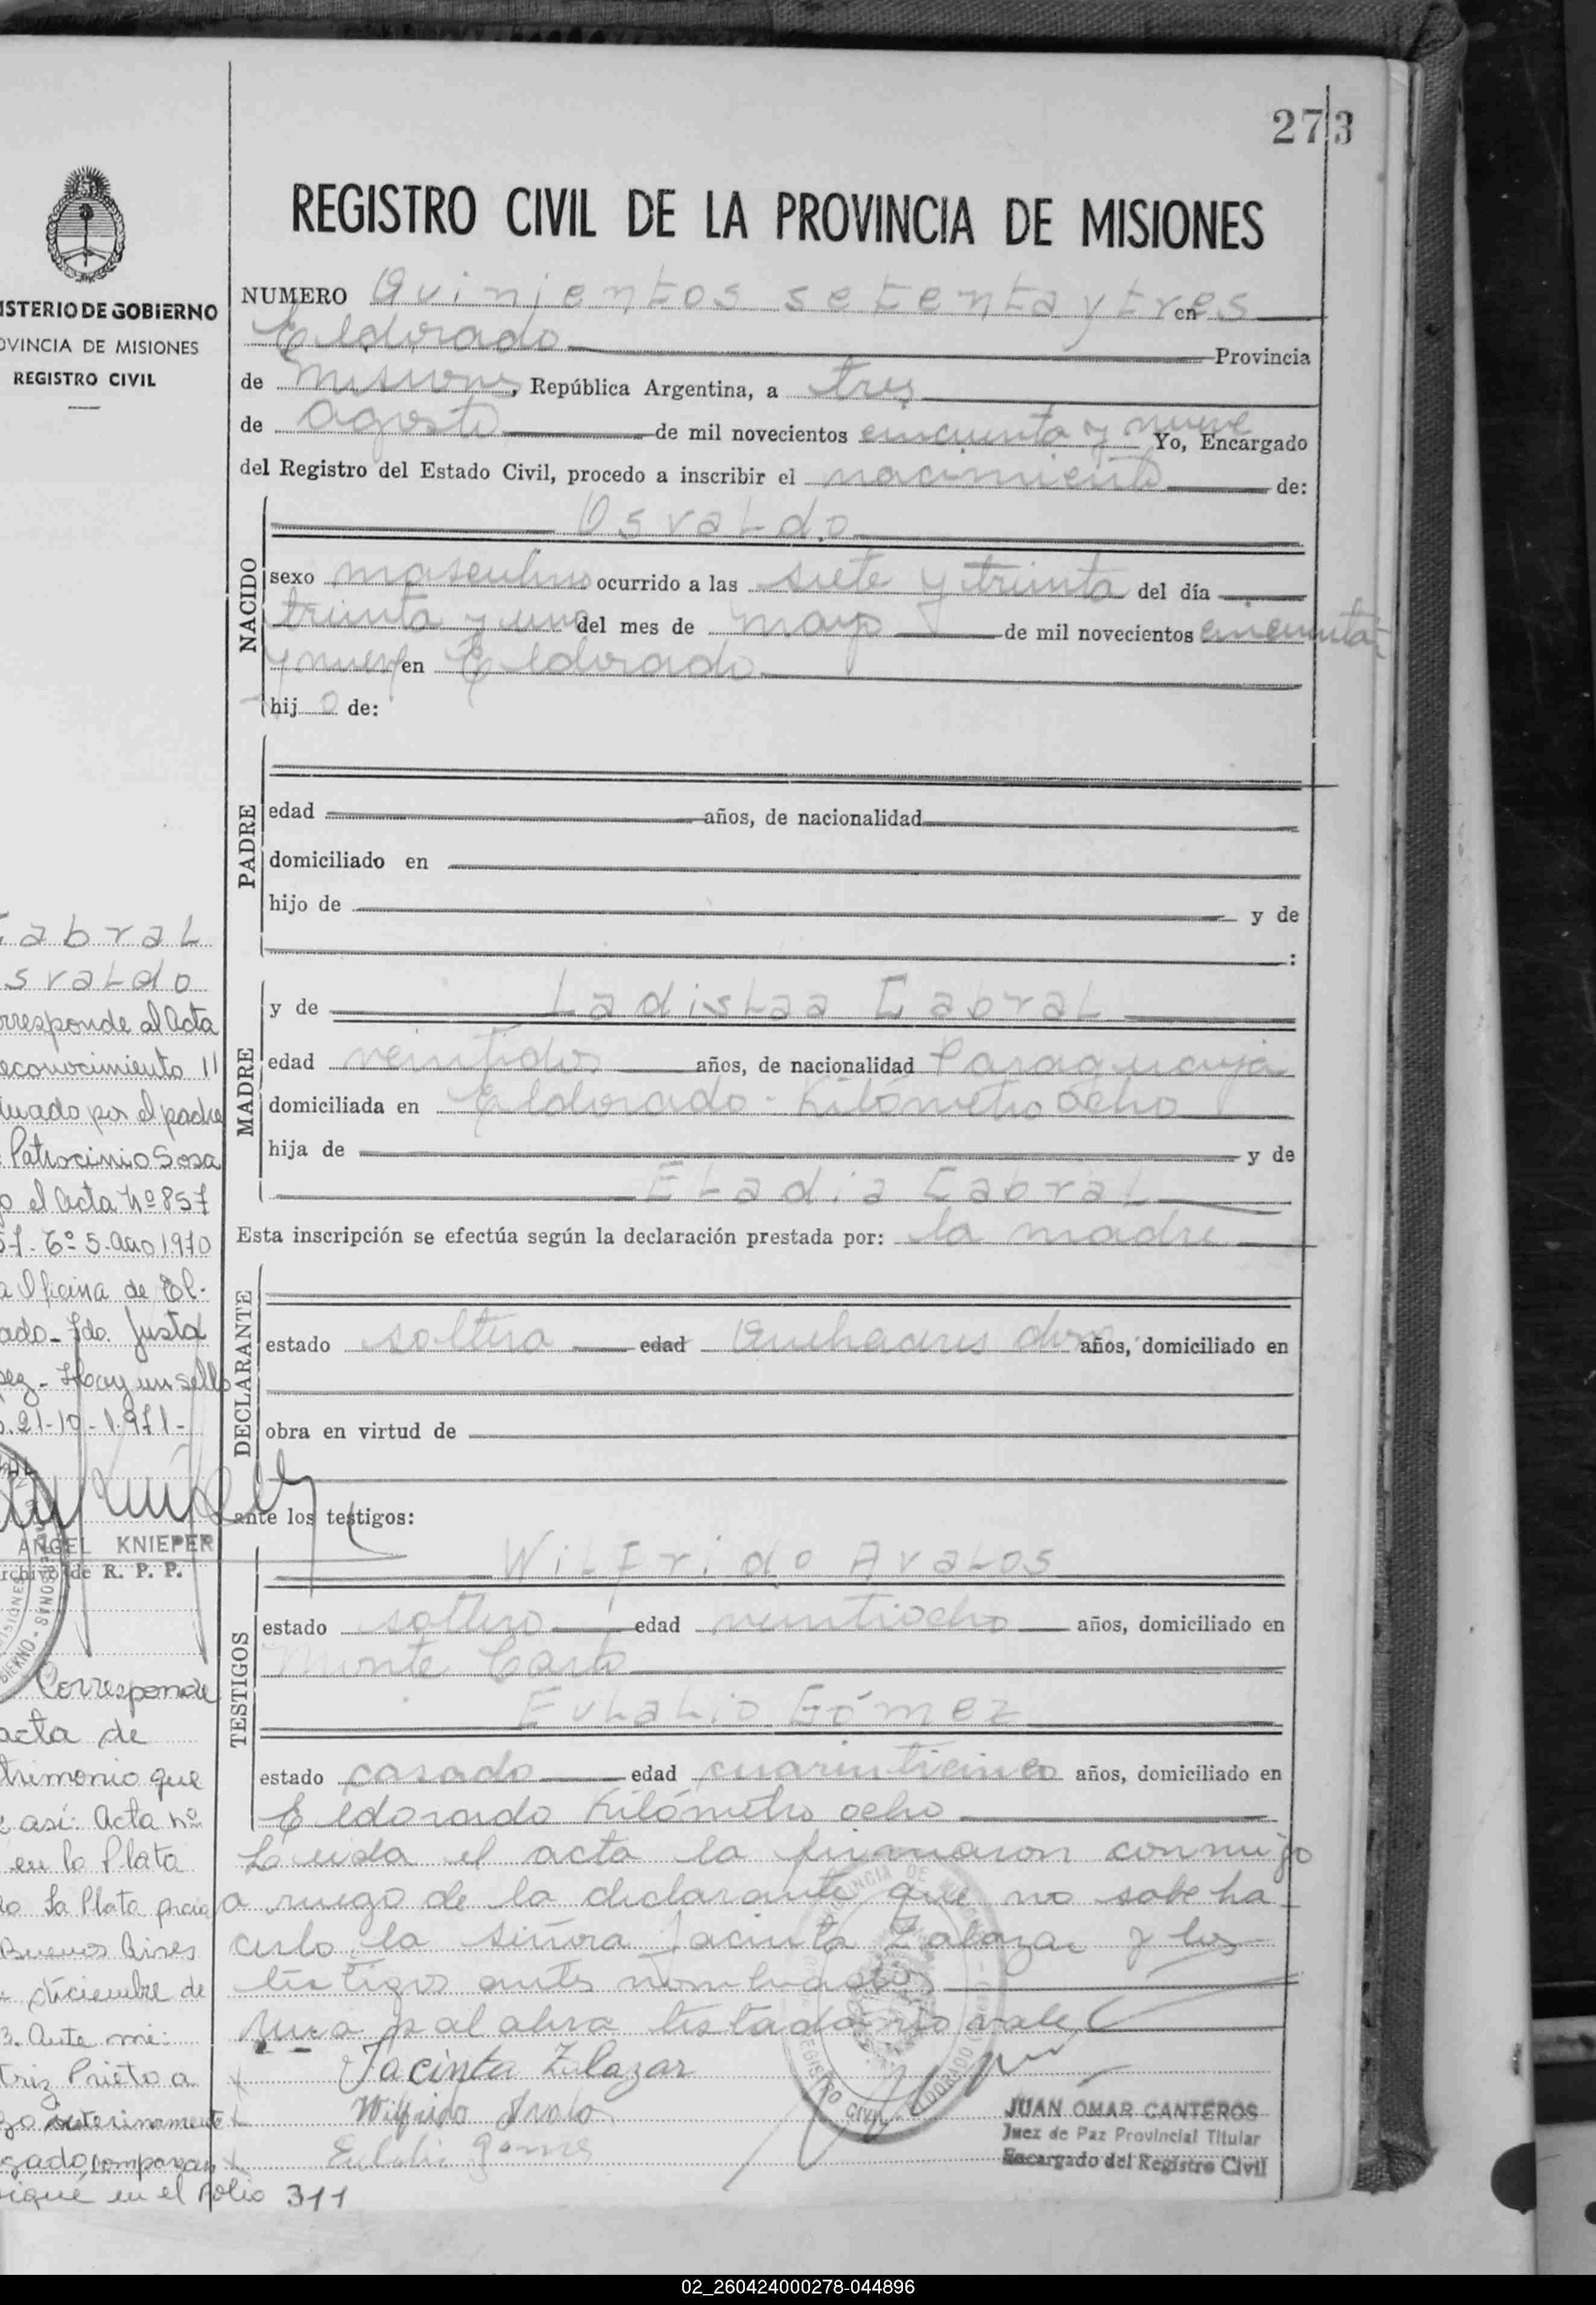 273
REGISTRO CIVIL DE LA PROVINCIA DE MISIONES
ISTERIO DE GOBIERNO
OVINCIA DE MISIONES
REGISTRO CIVIL
NUMERO Quinientos setenta y tres en
Eldorado Provincia
de Misiones, República Argentina, a tres
de agosto de mil novecientos cincuenta y nueve Yo, Encargado
del Registro del Estado Civil, procedo a inscribir el nacimiento de:
NACIDO
Osvaldo
sexo masculino ocurrido a las siete y treinta del día
treinta y uno del mes de mayo de mil novecientos cincuenta
y nueve en Eldorado
hijo de:
PADRE
edad años, de nacionalidad
domiciliado en
hijo de y de
:
MADRE
y de Ladislaa Cabral
edad veintidos años, de nacionalidad Paraguaya
domiciliada en Eldorado - Kilómetro ocho
hija de y de
Eladia Cabral
Esta inscripción se efectúa según la declaración prestada por: la madre
DECLARANTE
estado soltera edad Quehaceres dom años, domiciliado en
obra en virtud de
ante los testigos:
TESTIGOS
Wilfrido Avalos
estado soltero edad veintiocho años, domiciliado en
Monte Carlo
Eulalio Gómez
estado casado edad cuarenticinco años, domiciliado en
Eldorado Kilómetro ocho
Leida el acta la firmaron conmigo
a ruego de la declarante que no sabe ha
cerlo la señora Jacinta Zalazar y los
testigos antes nombrados
una palabra testada no vale
Jacinta Zalazar
Wilfrido Avalo
Eulalio Gomez
JUAN OMAR CANTEROS
Juez de Paz Provincial Titular
Encargado del Registro Civil
Cabral
svaldo
rresponde al Acta
econocimiento 11
tuado por el padre
Patrocinio Sosa
o el Acta Nº 857
57. Tº 5. Año 1970
a Oficina de El-
ado - Fdo. Justa
pez - Hay un sello
21-10-1971-
ANGEL KNIEPER
rchivo de R. P. P.
Corresponde
acta de
trimonio que
e así: Acta nº
en la Plata
do La Plata pcia
Buenos Aires
e Diciembre de
3. Ante mi:
triz Prieto a
go interinamente
zgado, comparan
sigue en el folio 311
02_260424000278-044896